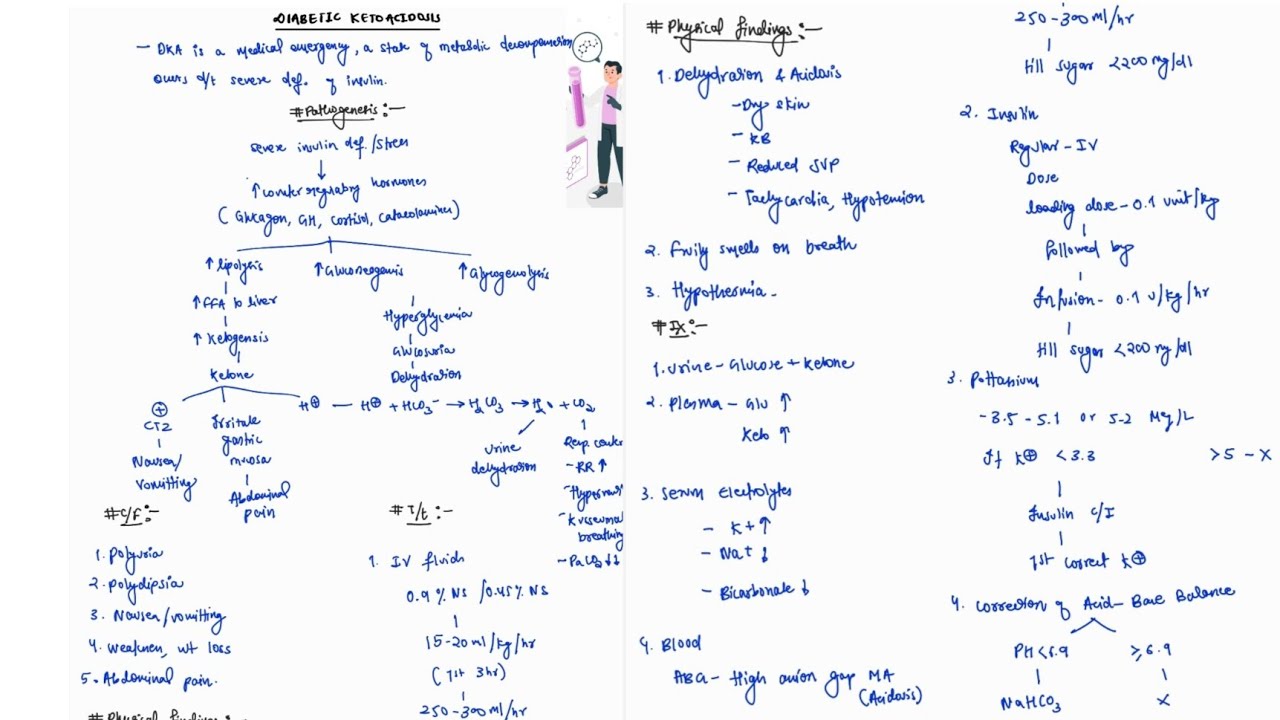 DIABETIC KETOACIDOSIS
- DKA is a medical emergency, a state of metabolic decompensation
occurs d/t severe def. of insulin.
# Pathogenesis :-
severe insulin def./stress
↓
↑ counter regulatory hormones
(Glucagon, GH, cortisol, catacolamines)
↑ lipolysis ↑ Gluconeogenesis ↑ Glycogenolysis
↑ FFA to liver
↑ Ketogensis
Ketone
Hyperglycemia
Glucosuria
Dehydration
H⊕ — H⊕ + HCO3⁻ → H2CO3 → H2O + CO2
⊕
CTZ
Nausea/
vomitting
Irritate
gastric
mucosa
Abdominal
pain
urine
dehydration
Resp. center
- RR ↑
- Kussumal
breathing
- PaCO2 ↓↓
# C/F :-
1. Polyuria
2. polydipsia
3. Nausea/vomitting
4. weakness, wt loss
5. Abdominal pain.
# Physical findings :-
# T/t :-
1. IV fluids
0.9 % NS / 0.45 % NS
15-20 ml/kg/hr
(1st 3hr)
250-300 ml/hr
# Physical findings :-
1. Dehydration & Acidosis
- Dry skin
- KB
- Reduced JVP
- Tachycardia, Hypotension
2. fruity smells on breath
3. Hypothermia -
# Ix :-
1. Urine - Glucose + Ketone
2. Plasma - Glu ↑
Keto ↑
3. Serum Electrolytes
- K+ ↑
- Na+ ↓
- Bicarbonate ↓
4. Blood
ABG - High anion gap MA
(Acidosis)
250-300 ml/hr
till sugar <200 mg/dl
2. Insulin
Regular - IV
Dose
loading dose - 0.1 unit/kg
followed by
Infusion - 0.1 U/kg/hr
till sugar <200 mg/dl
3. Pottasium
- 3.5 - 5.1 or 5-2 Meq/L
If K⊕ <3.3 >5 - X
Insulin C/I
1st correct K⊕
4. correction of Acid - Base Balance
PH <6.9 ≥6.9
NaHCO3 X